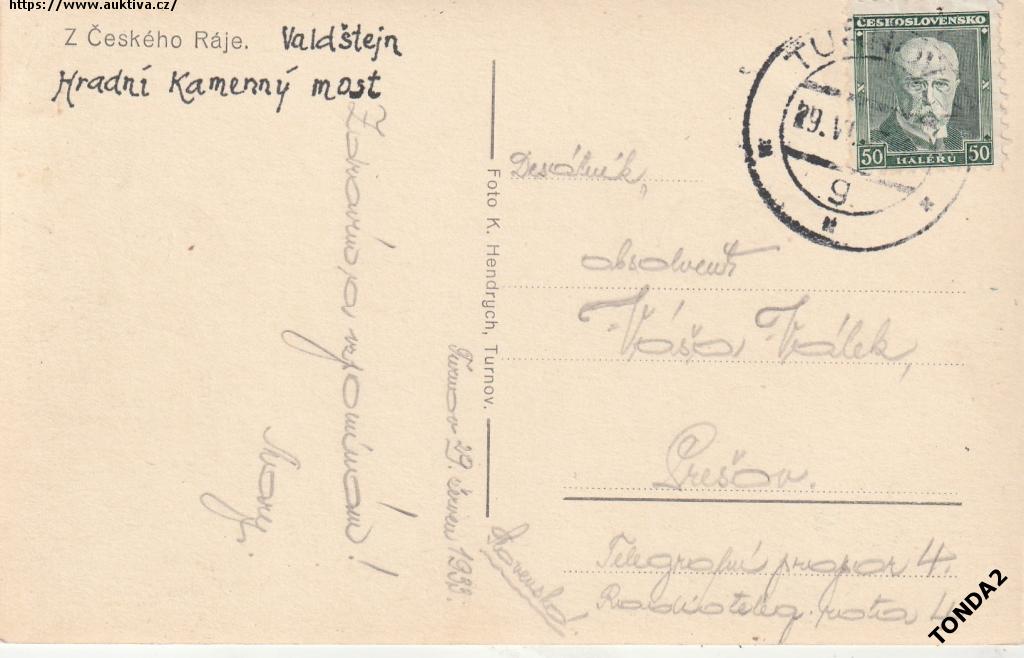 https://www.auktiva.cz/
Z Českého Ráje. Valdštejn
Hradní Kamenný most
Zdravím a vzpomínám!
Turnov 29. červen 1933.
Foto K. Hendrych, Turnov.
ČESKOSLOVENSKO
50 HALÉŘŮ 50
TURNOV
29.VI
g
Desátník,
absolvent
Váša Válek,
Prešov.
Slovensko
Telegrafní prapor 4.
Radioteleg. rota 4
TONDA2